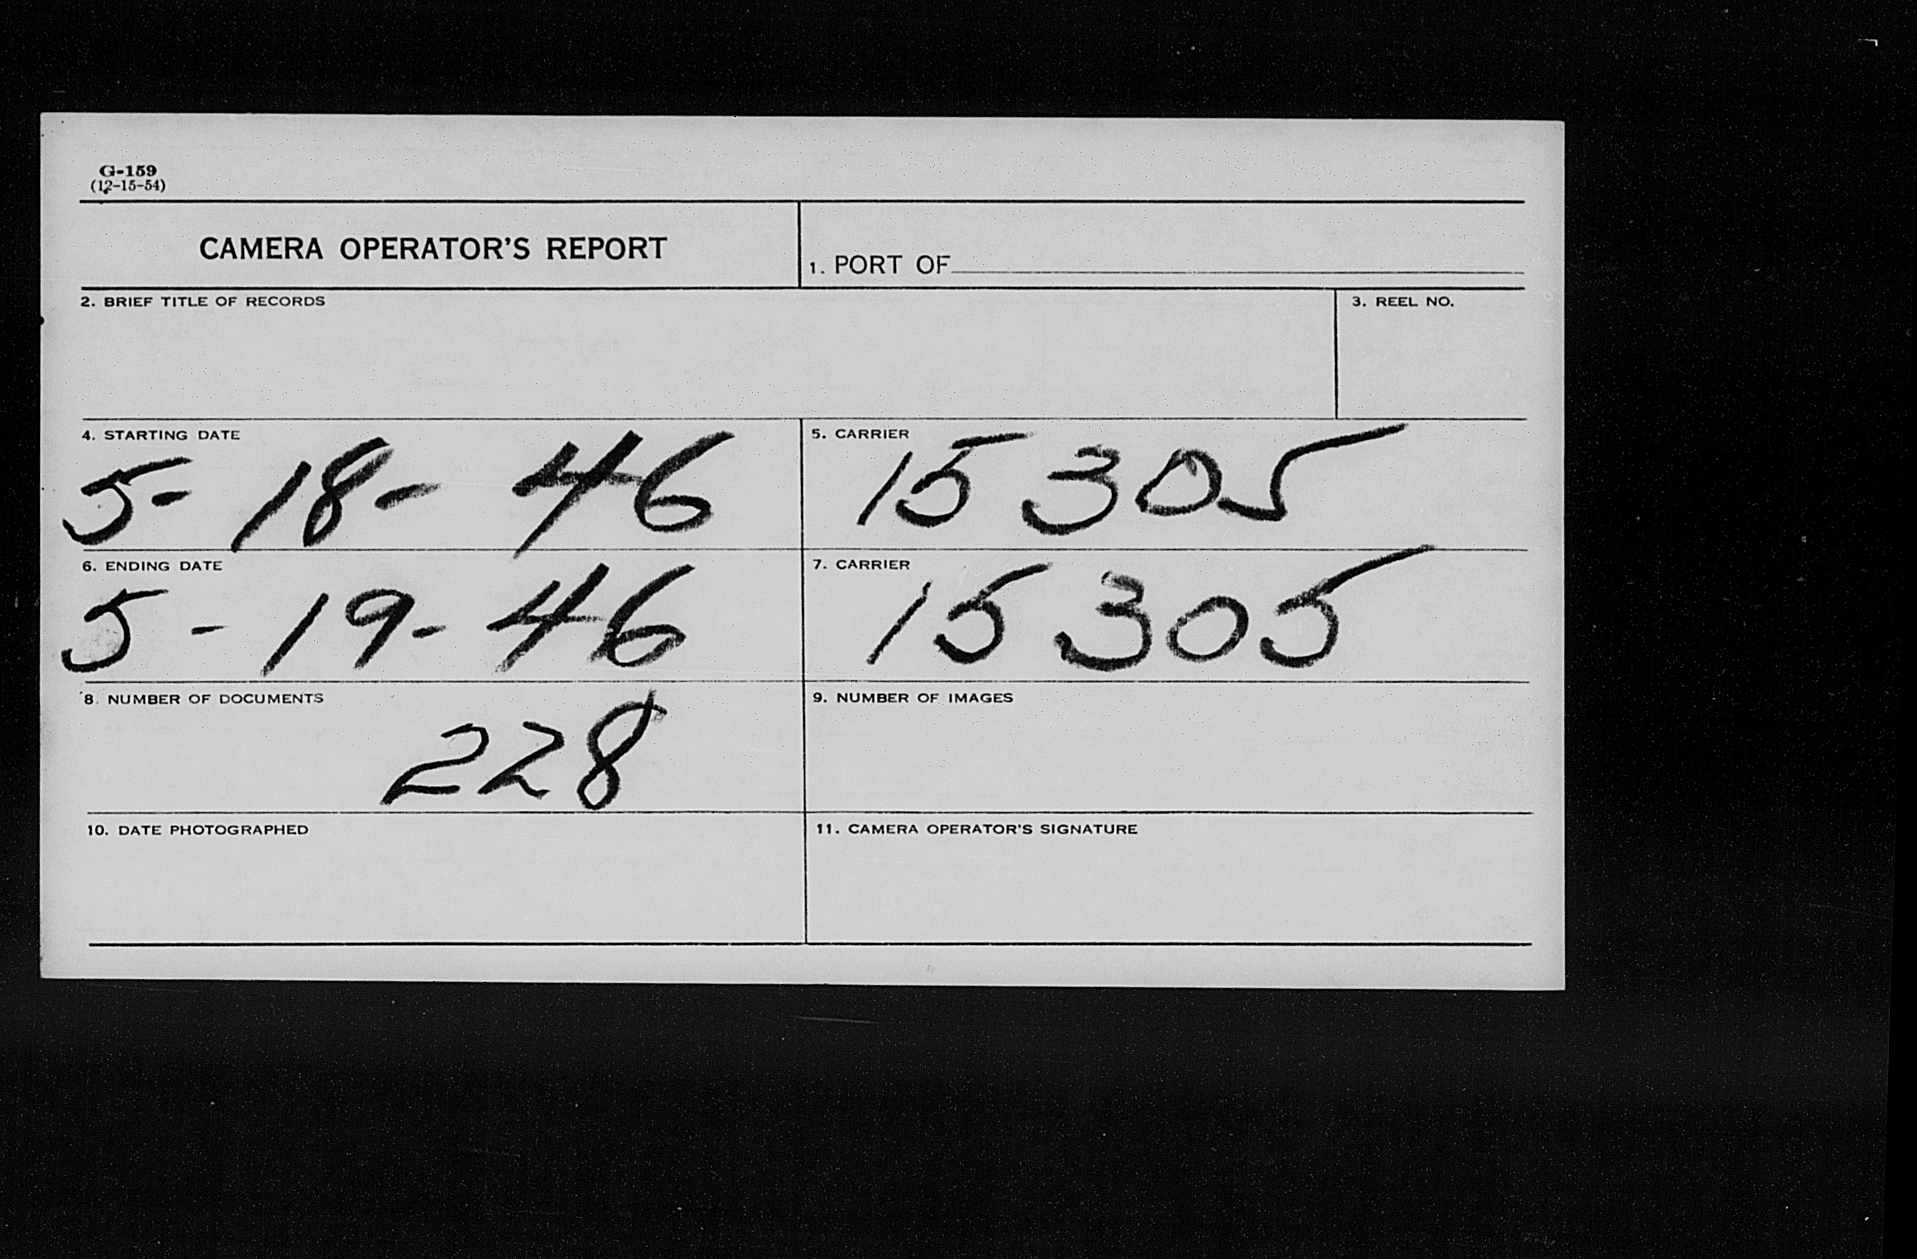 G-159
(12-15-54)
CAMERA OPERATOR'S REPORT
1. PORT OF
2. BRIEF TITLE OF RECORDS
3. REEL NO.
4. STARTING DATE
5-18-46
5. CARRIER
15305
6. ENDING DATE
5-19-46
7. CARRIER
15305
8. NUMBER OF DOCUMENTS
228
9. NUMBER OF IMAGES
10. DATE PHOTOGRAPHED
11. CAMERA OPERATOR'S SIGNATURE